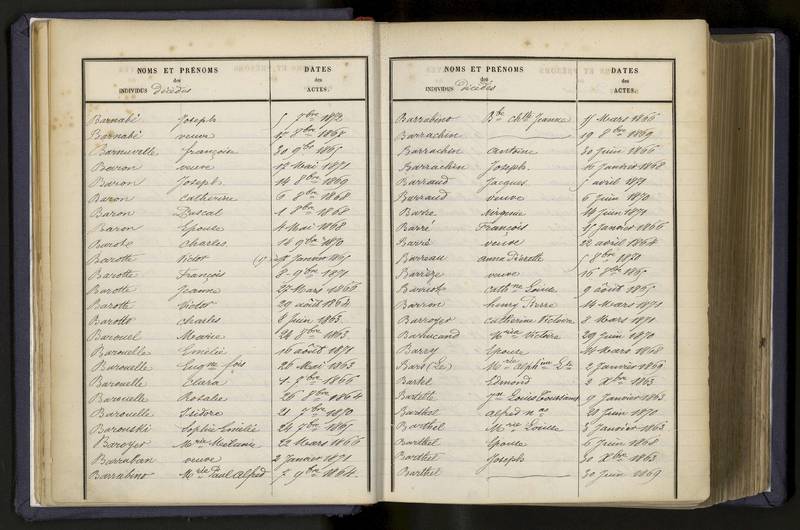 NOMS ET PRÉNOMS DATES
des des
INDIVIDUS Décédés ACTES.
Barnabé Joseph 5 7bre 1872
Barnabé veuve 17 8bre 1868
Barneville françoise 30 9bre 1865
Baron veuve 12 Mai 1871
Baron Joseph 14 8bre 1869
Baron Catherine 6 8bre 1868
Baron Pascal 1 8bre 1868
Baron Epouse 4 Mai 1868
Charles 14 9bre 1870
Barotte Victor Janvier 1865
Barotte François 8 9bre 1871
Barotte Jeanne 27 Mars 1866
Barotte Victor 29 août 1864
Barotte Charles 8 Juin 1863
Barouel 24 8bre 1863
Barouelle Emélie 16 août 1871
Barouelle Eugne fois 26 Mai 1863
Barouelle Clara 1 8bre 1866
Barouelle Rosalie 26 8bre 1864
Barouelle Isidore 21 7bre 1870
Barouski Sophie Emélie 24 7bre 1865
Baroyer Mrie Melanie 22 Mars 1866
Barraban veuve 2 Janvier 1871
Barrabino Mrie Paul Alfred 5 9bre 1864
NOMS ET PRÉNOMS DATES
des des
INDIVIDUS Décédés ACTES.
Barrabino Jeanne 15 Mars 1866
Barrachin 19 8bre 1869
Barrachin Antoine 30 Juin 1866
Barrachin Joseph 16 Janvier 1868
Barraud Jacques 5 avril 1871
Barraud veuve 6 Juin 1870
Barre Virginie 14 Juin 1871
Barré François 15 Janvier 1866
Barré veuve 22 avril 1864
Barreau Anne Pierrette 5 8bre 1871
Barrèze veuve 16 8bre 1865
Cathne Louise 9 août 1865
Barron henry Pierre 14 Mars 1871
Barroyer Catherine Victoire 8 Mars 1871
Barrucand Mrie Victoire 29 Juin 1870
Barry Epouse 24 Mars 1868
Bars (Le) Mrie 2 Janvier 1866
Bartel Edmond 2 Xbre 1863
Louis Toussaint 9 Janvier 1863
Barthel 20 Juin 1870
Barthel Mrie Louise 5 Janvier 1863
Barthel Epouse 6 Juin 1868
Barthel Joseph 30 Xbre 1863
Barthel 30 Juin 1869